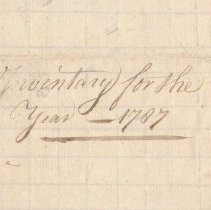 Inventary for the
Year — 1787